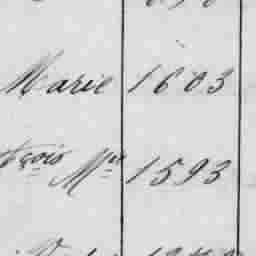 Marie 1603
çois Mie 1593